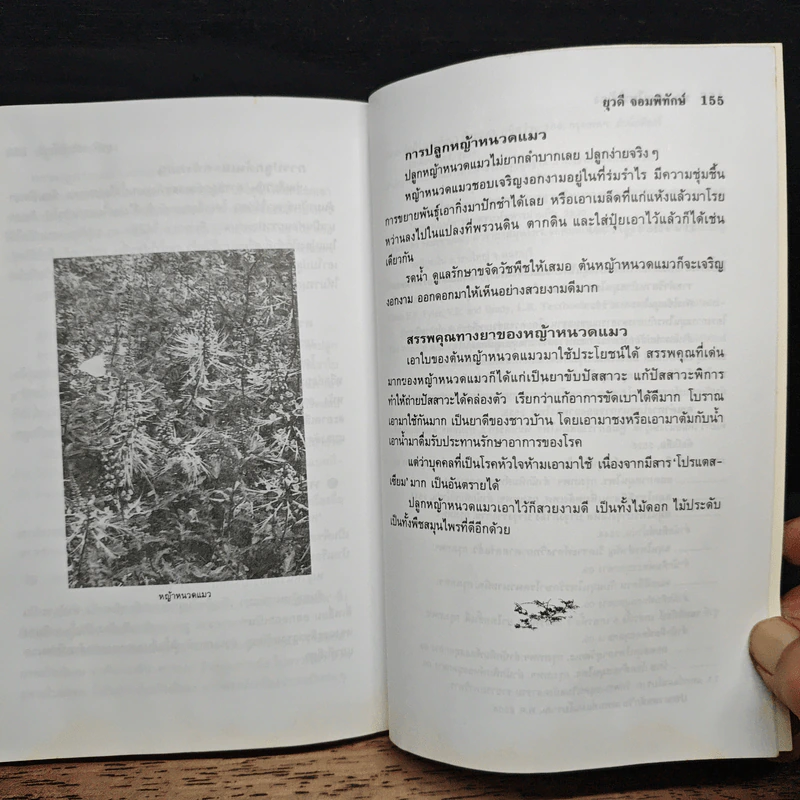 หญ้าหนวดแมว
ยุวดี จอมพิทักษ์ 155
การปลูกหญ้าหนวดแมว
ปลูกหญ้าหนวดแมวไม่ยากลำบากเลย ปลูกง่ายจริง ๆ
หญ้าหนวดแมวชอบเจริญงอกงามอยู่ในที่ร่มรำไร มีความชุ่มชื้น
การขยายพันธุ์เอากิ่งมาปักชำได้เลย หรือเอาเมล็ดที่แก่แห้งแล้วมาโรย
หว่านลงไปในแปลงที่พรวนดิน ตากดิน และใส่ปุ๋ยเอาไว้แล้วก็ได้เช่น
เดียวกัน
รดน้ำ ดูแลรักษาขจัดวัชพืชให้เสมอ ต้นหญ้าหนวดแมวก็จะเจริญ
งอกงาม ออกดอกมาให้เห็นอย่างสวยงามดีมาก
สรรพคุณทางยาของหญ้าหนวดแมว
เอาใบของต้นหญ้าหนวดแมวมาใช้ประโยชน์ได้ สรรพคุณที่เด่น
มากของหญ้าหนวดแมวก็ได้แก่เป็นยาขับปัสสาวะ แก้ปัสสาวะพิการ
ทำให้ถ่ายปัสสาวะได้คล่องตัว เรียกว่าแก้อาการขัดเบาได้ดีมาก โบราณ
เอามาใช้กันมาก เป็นยาดีของชาวบ้าน โดยเอามาชงหรือเอามาต้มกับน้ำ
เอาน้ำมาดื่มรับประทานรักษาอาการของโรค
แต่ว่าบุคคลที่เป็นโรคหัวใจห้ามเอามาใช้ เนื่องจากมีสาร 'โปรแตส-
เซียม' มาก เป็นอันตรายได้
ปลูกหญ้าหนวดแมวเอาไว้ก็สวยงามดี เป็นทั้งไม้ดอก ไม้ประดับ
เป็นทั้งพืชสมุนไพรที่ดีอีกด้วย